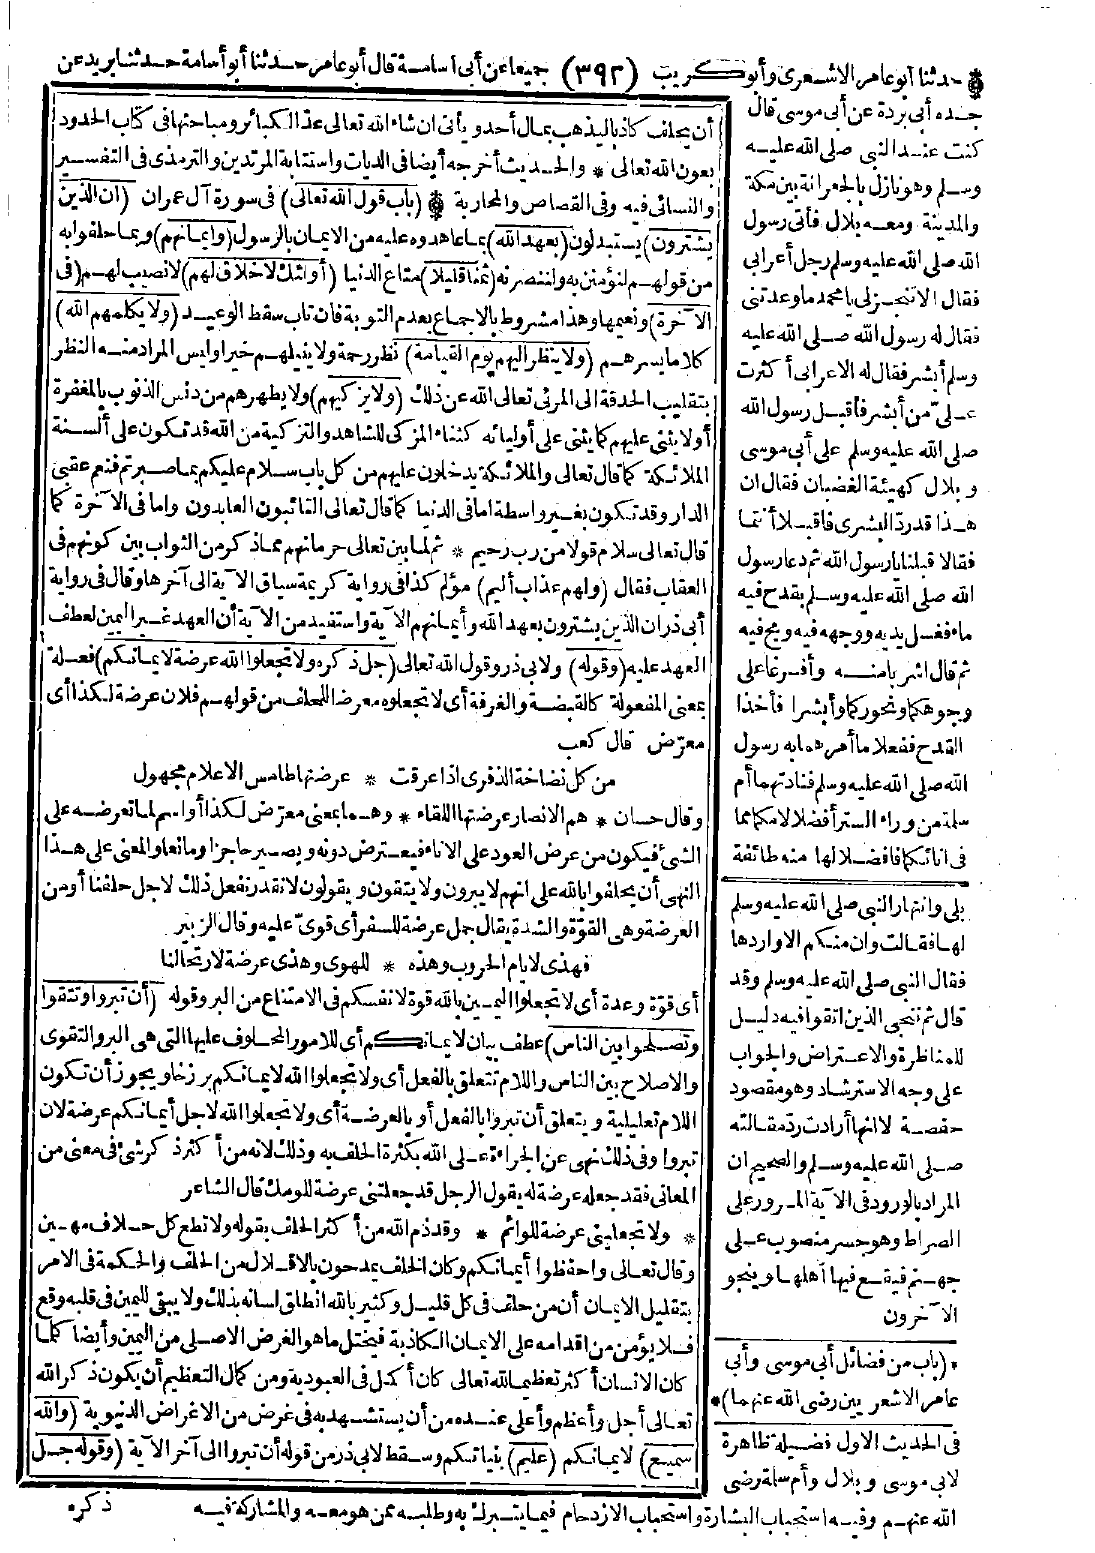 * حدثنا أبو عامر الاشعرى وأبو كريب (٣٩٢) جميعا عن أبى اسامة قال أبو عامر حدثنا أبو أسامة حدثنا بريد عن
جده أبى بردة عن أبى موسى قال
كنت عند النبى صلى الله عليه
وسلم وهو نازل بالجعرانة بين مكة
والمدينة ومعه بلال فأتى رسول
الله صلى الله عليه وسلم رجل أعرابى
فقال الا تنجز لى يا محمد ما وعدتنى
فقال له رسول الله صلى الله عليه
وسلم أبشر فقال له الاعرابى أكثرت
على من أبشر فأقبل رسول الله
صلى الله عليه وسلم على أبى موسى
وبلال كهيئة الغضبان فقال ان
هذا قد ردّ البشرى فاقبلا أنتما
فقالا قبلنا يا رسول الله ثم دعا رسول
الله صلى الله عليه وسلم بقدح فيه
ماء فغسل يديه ووجهه فيه ومج فيه
ثم قال اشربا منه وأفرغا على
وجوهكما ونحوركما وأبشرا فأخذا
القدح ففعلا ما أمرهما به رسول
الله صلى الله عليه وسلم فنادتهما أم
سلمة من وراء الستر أفضلا لامكما مما
فى انائكما فافضلا لها منه طائفة
بلى وانتهار النبى صلى الله عليه وسلم
لها فقالت وان منكم الا واردها
فقال النبى صلى الله عليه وسلم وقد
قال ثم ننجى الذين اتقوا فيه دليل
للمناظرة والاعتراض والجواب
على وجه الاسترشاد وهو مقصود
حفصة لا انها أرادت ردّ مقالته
صلى الله عليه وسلم والصحيح ان
المراد بالورود فى الآية المرور على
الصراط وهو جسر منصوب على
جهنم فيقع فيها أهلها وينجو
الآخرون
* (باب من فضائل أبى موسى وأبى
عامر الاشعريين رضى الله عنهما) *
فى الحديث الاول فضيلة ظاهرة
لابى موسى وبلال وأم سلمة رضى
الله عنهم وفيه استحباب البشارة واستحباب الازدحام فيما يتبرك به وطلبه ممن هو معه والمشاركة فيه
أن يحلف كاذبا ليذهب بمال أحد ويأتى ان شاء الله تعالى عدّ الكبائر ومباحثها فى كتاب الحدود
بعون الله تعالى * والحديث أخرجه أيضا فى الديات واستتابة المرتدين والترمذى فى التفسير
والنسائى فيه وفى القصاص والمحاربة * (باب قول الله تعالى) فى سورة آل عمران (ان الذين
يشترون) يستبدلون (بعهد الله) بما عاهدوه عليه من الايمان بالرسول (وايمانهم) وبما حلفوا به
من قولهم لنؤمنن به ولننصرنه (ثمنا قليلا) متاع الدنيا (أولئك لا خلاق لهم) لا نصيب لهم (فى
الآخرة) ونعيمها وهذا مشروط بالاجماع بعدم التوبة فان تاب سقط الوعيد (ولا يكلمهم الله)
كلاما يسرهم (ولا ينظر اليهم يوم القيامة) نظر رحمة ولا ينيلهم خيرا وليس المراد منه النظر
بتقليب الحدقة الى المرئى تعالى الله عن ذلك (ولا يزكيهم) ولا يطهرهم من دنس الذنوب بالمغفرة
أو لا يثنى عليهم كما يثنى على أوليائه كثناء المزكى للشاهد والتزكية من الله قد تكون على ألسنة
الملائكة كما قال تعالى والملائكة يدخلون عليهم من كل باب سلام عليكم بما صبرتم فنعم عقبى
الدار وقد تكون بغير واسطة اما فى الدنيا كما قال تعالى التائبون العابدون واما فى الآخرة كما
قال تعالى سلام قولا من رب رحيم * ثم لما بين تعالى حرمانهم مما ذكر من الثواب بين كونهم فى
العقاب فقال (ولهم عذاب أليم) مؤلم كذا فى رواية كريمة سياق الآية الى آخرها وقال فى رواية
أبى ذر ان الذين يشترون بعهد الله وأيمانهم الآية واستفيد من الآية أن العهد غير اليمين لعطف
العهد عليه (وقوله) ولابى ذر وقول الله تعالى (جل ذكره ولا تجعلوا الله عرضة لايمانكم) فعلة
بمعنى المفعولة كالقبضة والغرفة أى لا تجعلوه معرضا للحلف من قولهم فلان عرضة لكذا أى
معرّض قال كعب
من كل نضاخة الذفرى اذا عرقت * عرضتها طامس الاعلام مجهول
وقال حسان * هم الانصار عرضتها اللقاء * وهما بمعنى معرّض لكذا أو اسم لما تعرضه على
الشئ فيكون من عرض العود على الاناء فيعترض دونه ويصير حاجزا ومانعا والمعنى على هذا
النهى أن يحلفوا بالله على انهم لا يبرون ولا يتقون ويقولون لا نقدر نفعل ذلك لاجل حلفنا أو من
العرضة وهى القوّة والشدة يقال جمل عرضة للسفر أى قوىّ عليه وقال الزبير
فهذى لايام الحروب وهذه * للهوى وهذى عرضة لارتحالنا
أى قوّة وعدة أى لا تجعلوا اليمين بالله قوة لانفسكم فى الامتناع من البر وقوله (أن تبروا وتتقوا
وتصلحوا بين الناس) عطف بيان لايمانكم أى للامور المحلوف عليها التى هى البر والتقوى
والاصلاح بين الناس واللام تتعلق بالفعل أى ولا تجعلوا الله لايمانكم برزخا ويجوز أن تكون
اللام تعليلية ويتعلق أن تبروا بالفعل أو بالعرضة أى ولا تجعلوا الله لاجل أيمانكم عرضة لان
تبروا وفى ذلك نهى عن الجراءة على الله بكثرة الحلف به وذلك لانه من أكثر ذكر شئ فى معنى من
المعانى فقد جعله عرضة له يقول الرجل قد جعلتنى عرضة للومك قال الشاعر
* ولا تجعلينى عرضة للوائم * وقد ذم الله من أكثر الحلف بقوله ولا تطع كل حلاف مهين
وقال تعالى واحفظوا أيمانكم وكان الخلف يمدحون بالاقلال من الحلف والحكمة فى الامر
بتقليل الايمان أن من حلف فى كل قليل وكثير بالله انطلق لسانه بذلك ولا يبقى لليمين فى قلبه وقع
فلا يؤمن من اقدامه على الايمان الكاذبة فيختل ما هو الغرض الاصلى من اليمين وأيضا كلما
كان الانسان أكثر تعظيما لله تعالى كان أكمل فى العبودية ومن كمال التعظيم أن يكون ذكر الله
تعالى أجل وأعظم وأعلى عنده من أن يستشهد به فى غرض من الاغراض الدنيوية (والله
سميع) لايمانكم (عليم) بنياتكم وسقط لابى ذر من قوله أن تبروا الى آخر الآية (وقوله جل
ذكره